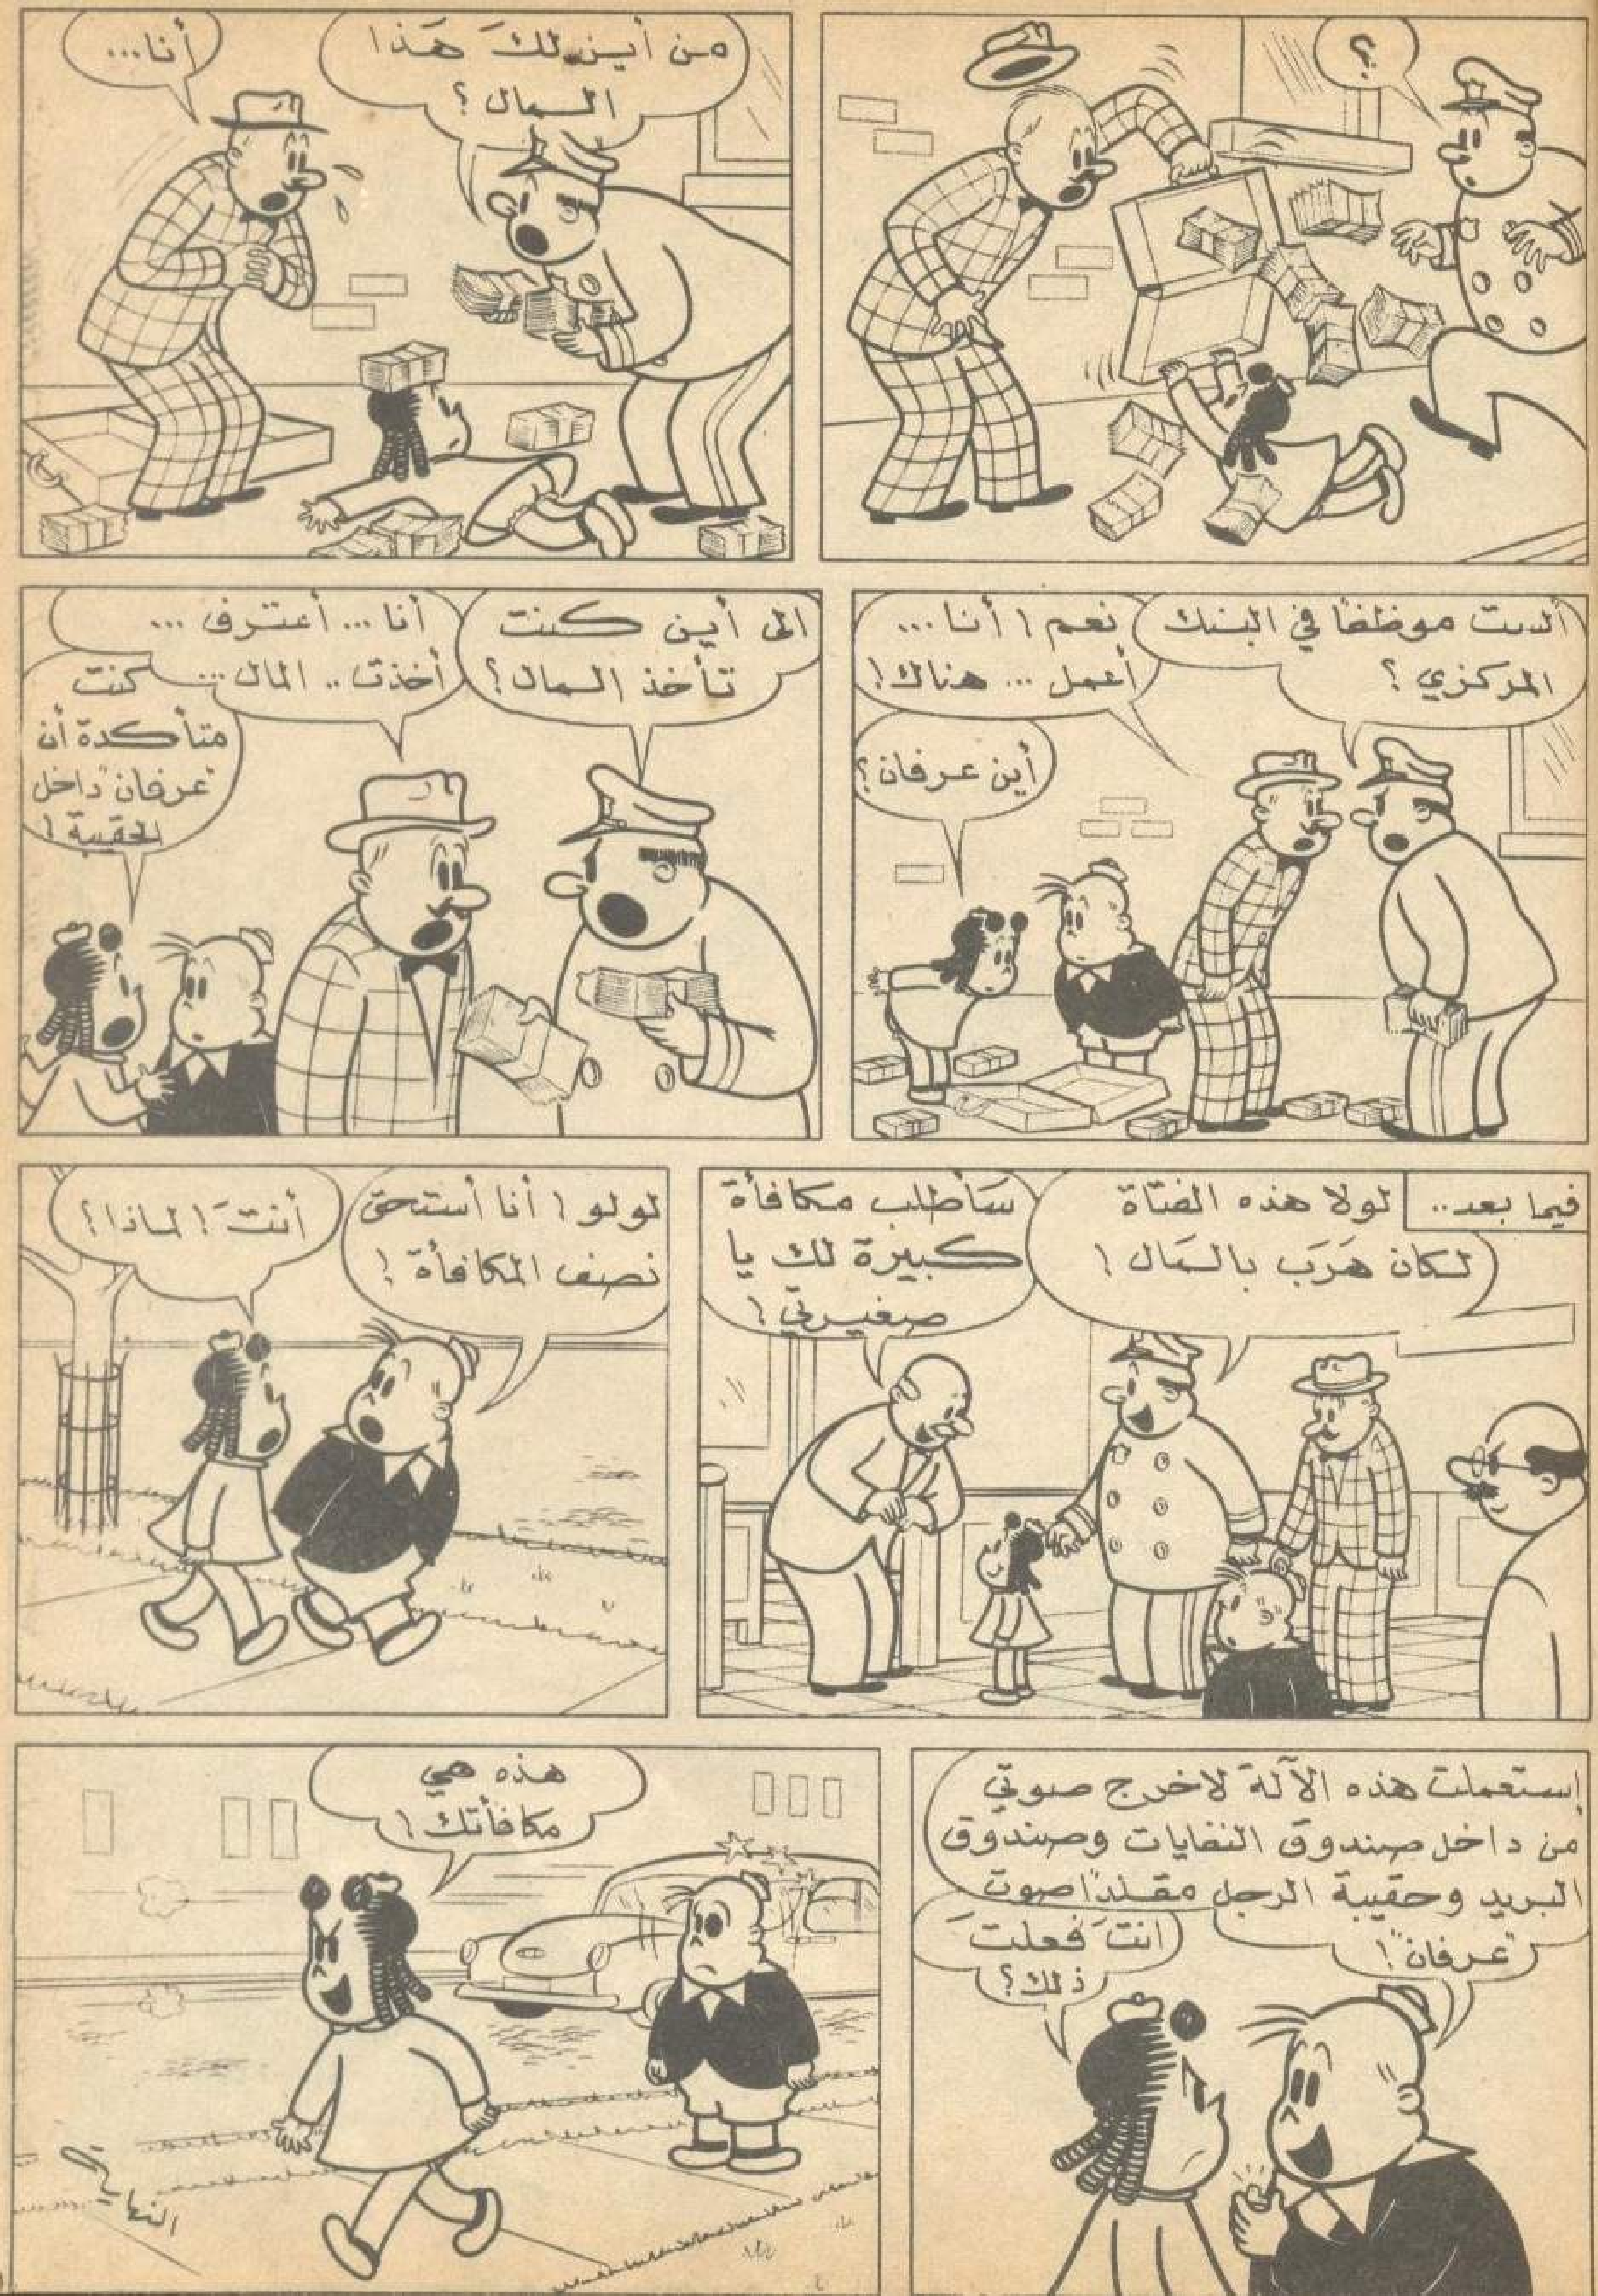 ؟
من أين لكَ هَذا
المال ؟
أنا...
ألست موظفاً في البنك
المركزي ؟
نعم ! أنا ...
أعمل ... هناك !
أين عرفان ؟
الى أين كنت
تأخذ المال ؟
أنا ... أعترف ...
أخذت .. المال ...
كنت
متأكدة أن
"عرفان" داخل
الحقيبة !
فيما بعد..
لولا هذه الفتاة
لكان هَرَب بالمَال !
سَأطلب مكافأة
كبيرة لك يا
صغيرتي !
لولو ! أنا أستحق
نصف المكافأة !
أنتَ ! لماذا ؟
إستعملت هذه الآلة لاخرج صوتي
من داخل صندوق النفايات وصندوق
البريد وحقيبة الرجل مقلداً صوت
"عرفان" !
انتَ فعلتَ
ذلك ؟
هذه هي
مكافأتك !
النهاية